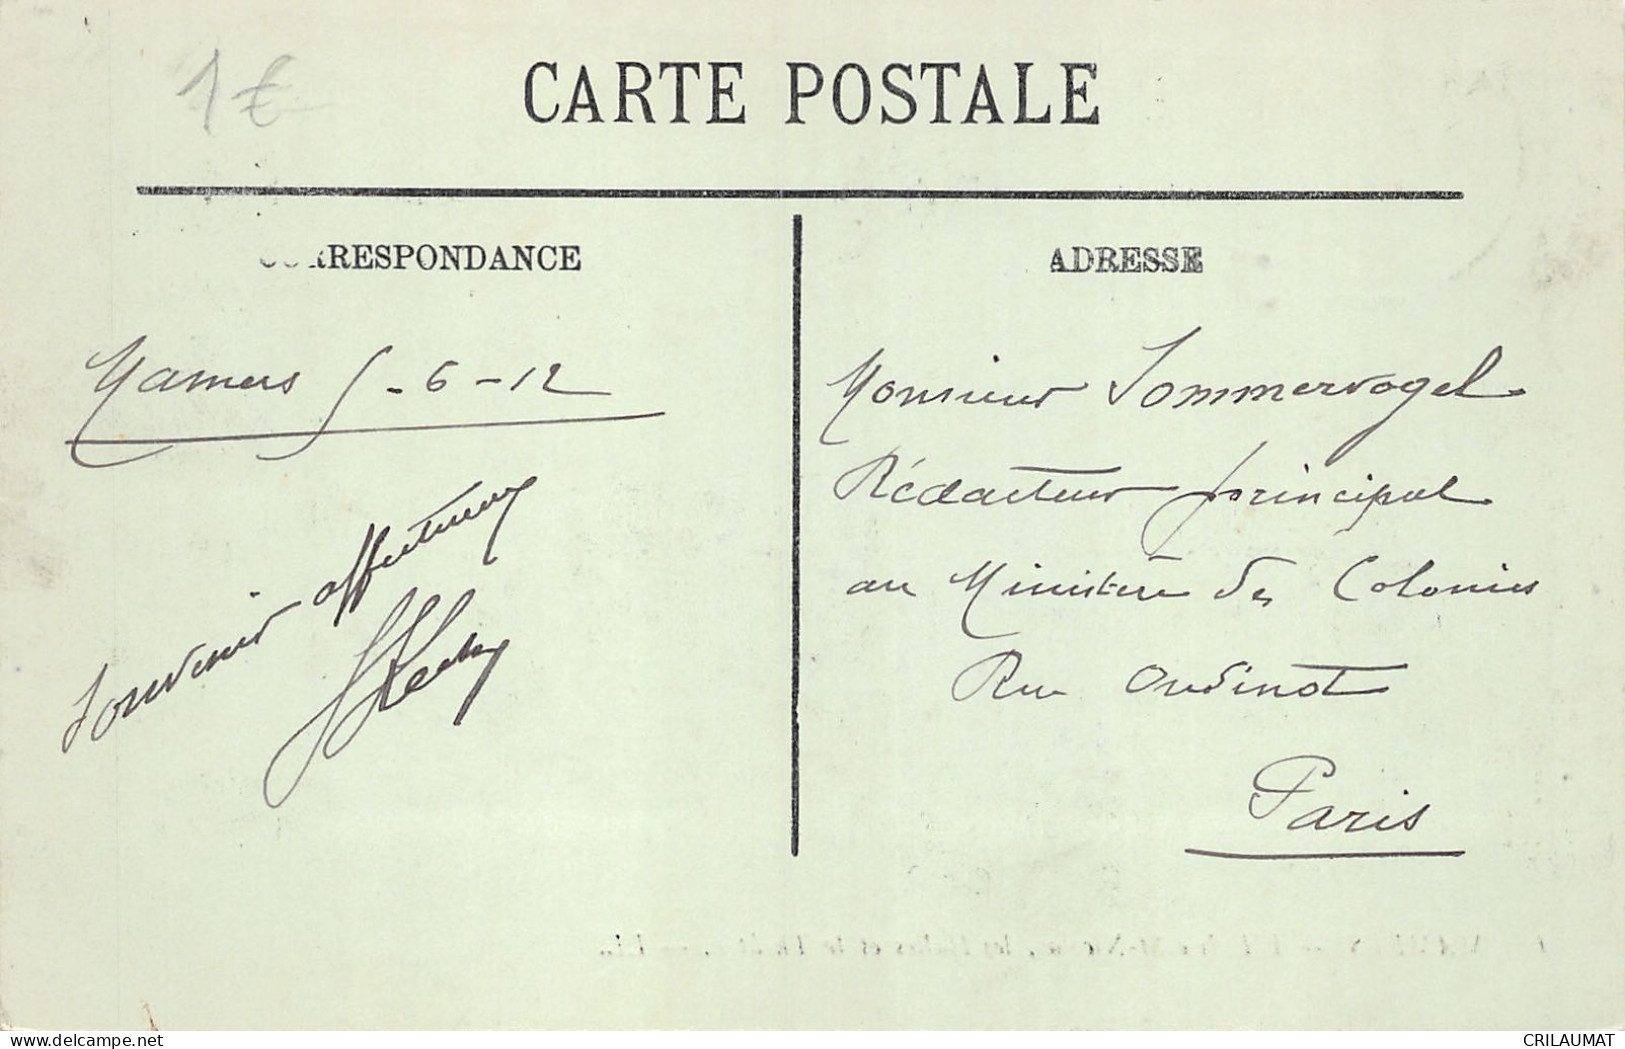 1 €
CARTE POSTALE
CORRESPONDANCE
Mamers 5-6-12
Souvenir affectueux
ADRESSE
Monsieur Sommervogel
Rédacteur principal
au Ministère des Colonies
Rue Oudinot
Paris
www.delcampe.net
CRILAUMAT